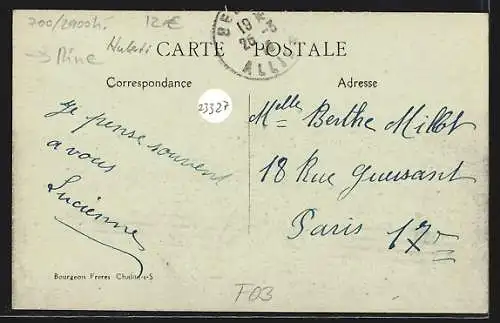 700/2900hi. 12 €
→ Mine
CARTE POSTALE
BE
19 *
26 - 3
ALLI
Correspondance
Adresse
23327
Je pense souvent
a vous
Lucienne
Mlle Berthe Millot
18 Rue Guersant
Paris 17e
Bourgeon Freres Chalon-s-S
F03